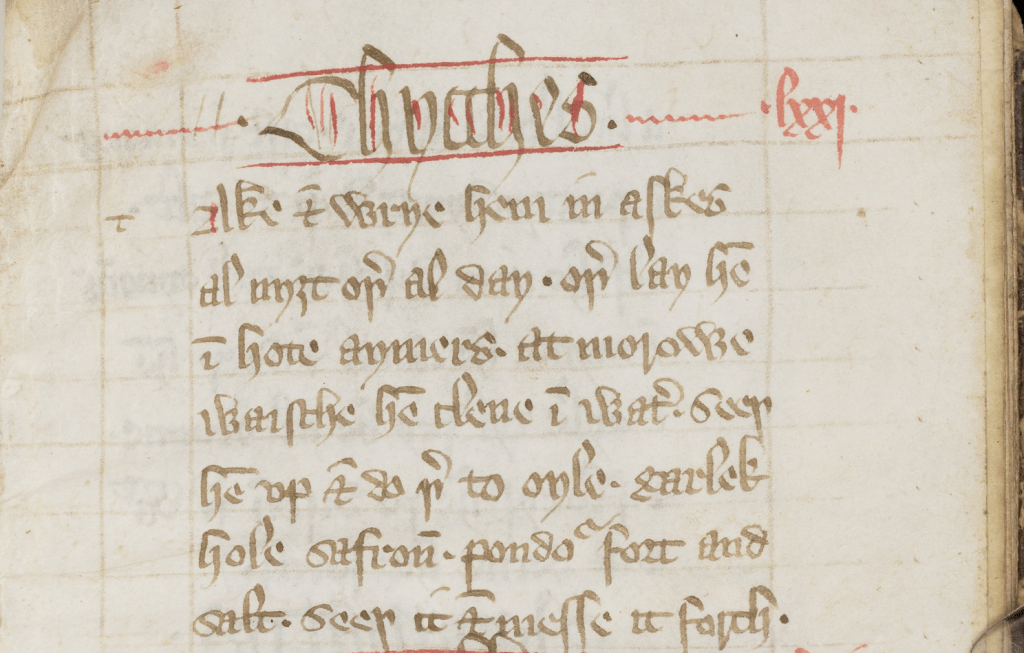 Chycches. lxxi.
t ake ⁊ wrye hem in askes
al nyȝt oþ̉ al day. oþ̉ lay hē
ī hote aymers. at morowe
waische hē clene ī wat̉. seeþ
hē vp ⁊ do þ̉ to oyle. garlek
hole safroū. pondoᵃ fort and
salt. seeþ it ⁊ messe it forth.